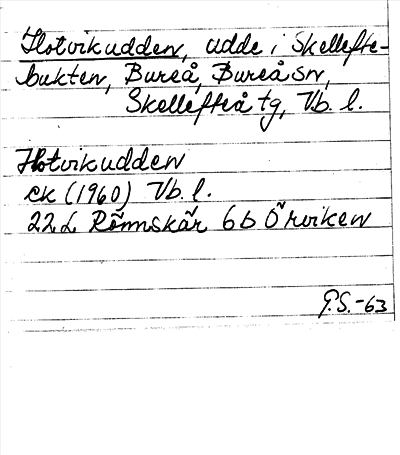 Hotvikudden, udde i Skellefte-
bukten, Bureå, Bureå sn,
Skellefteå tg, Vb. l.
Hotvikudden
ek (1960) Vb. l.
22 L Rönnskär 6b Örviken
G.S.-63